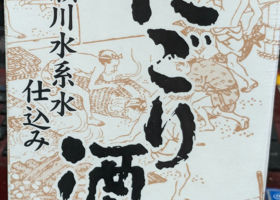 にごり酒
川水系水
仕込み